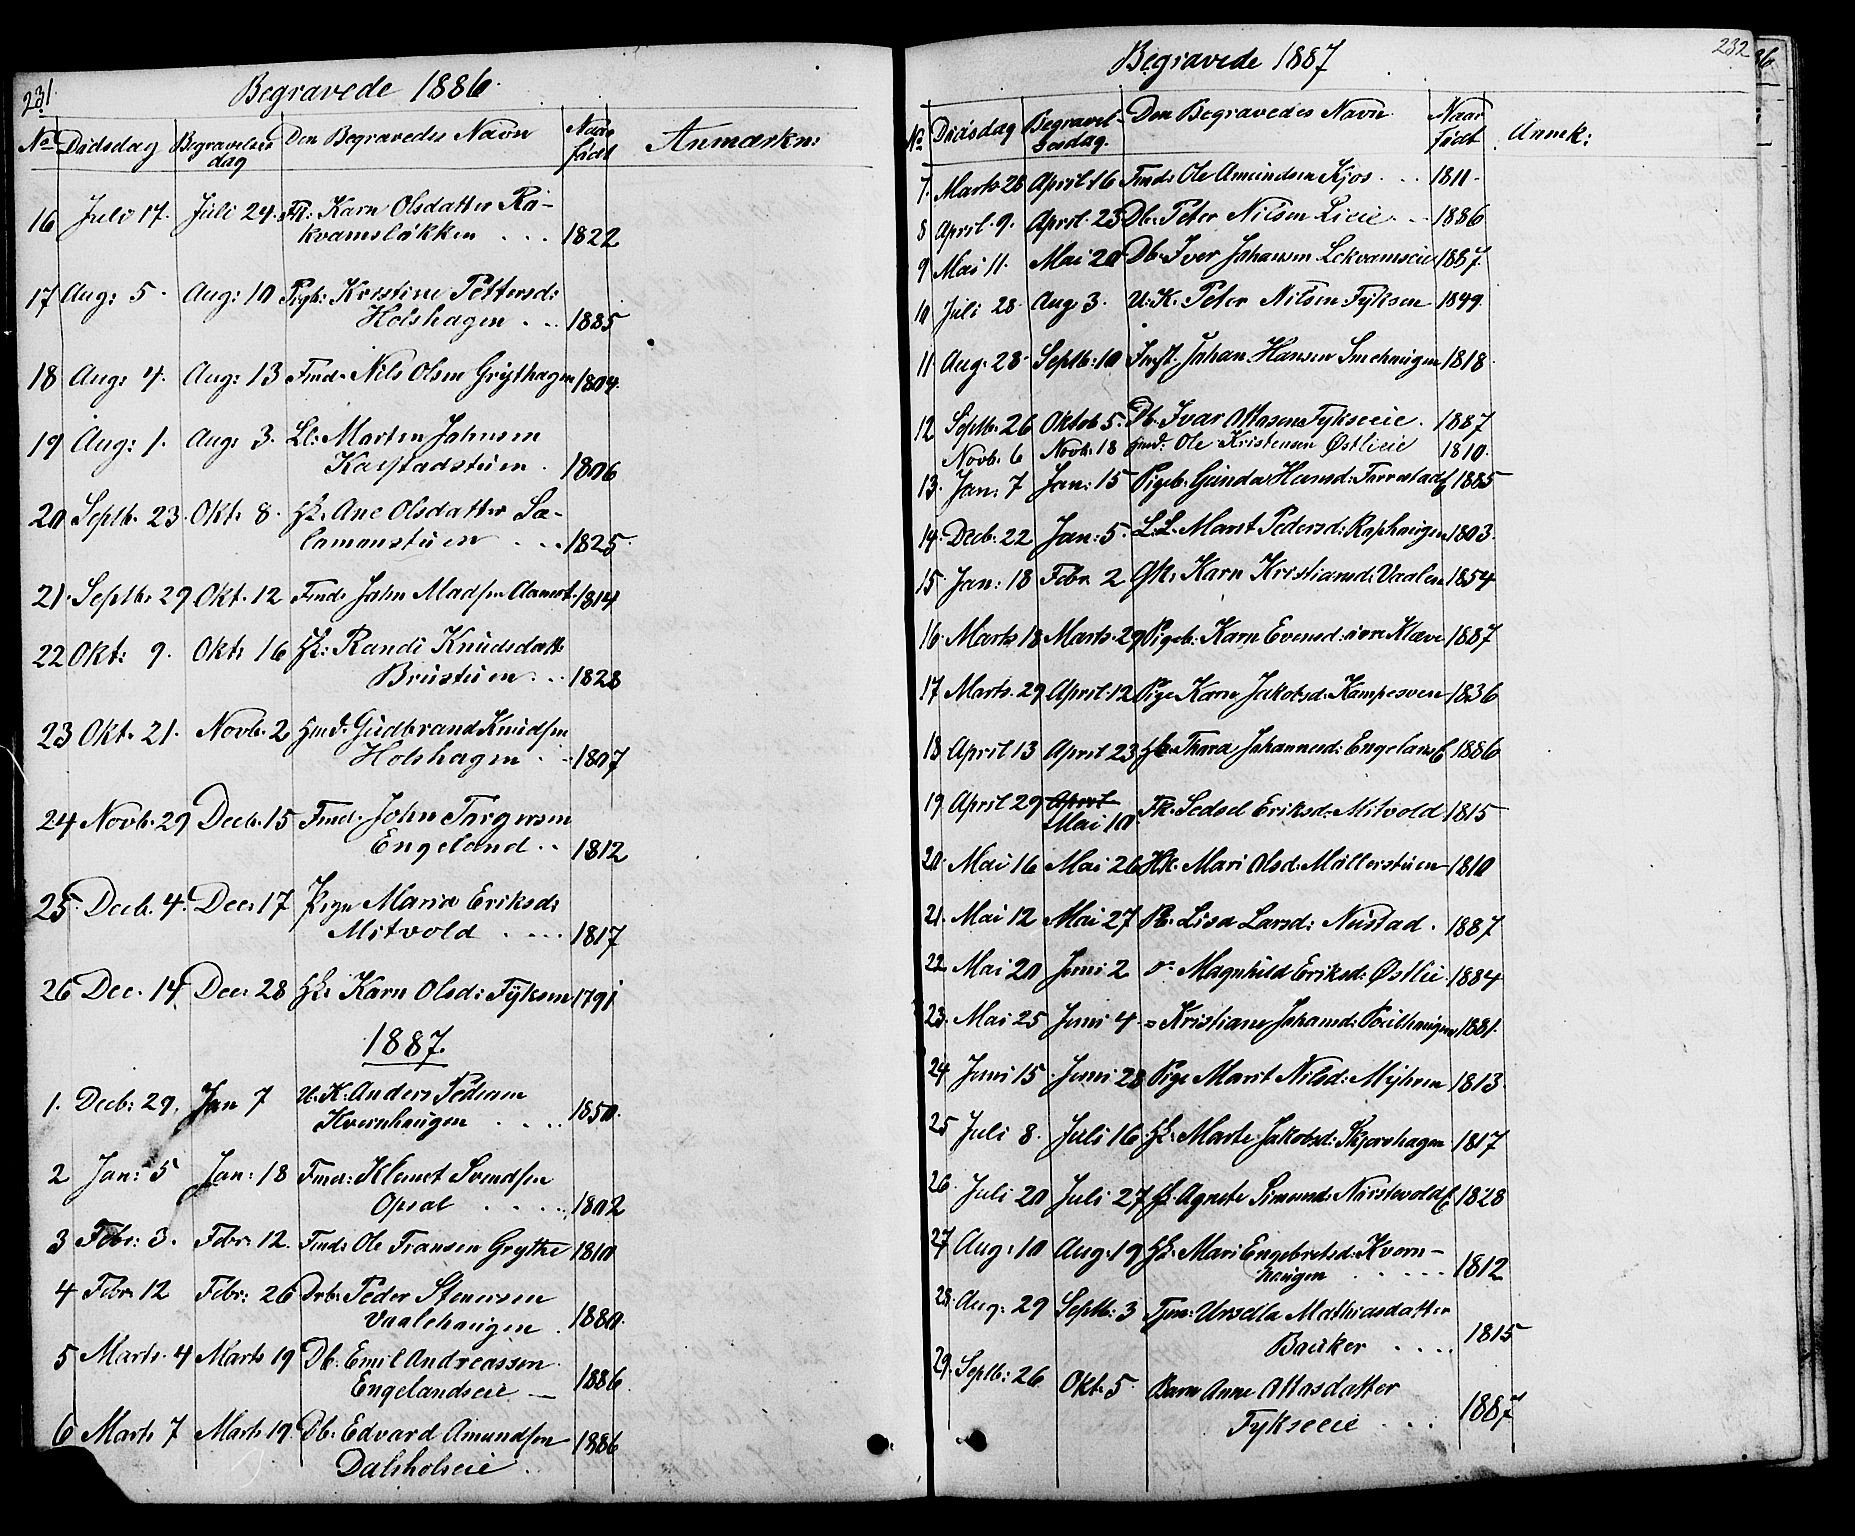 231.
Begravede 1886.
No Dødsdag Begravelses dag Den Begravedes Navn Naar født Anmærkn:
16 Juli 17. Juli 24. Fk: Karn Olsdatter Rå-
kvamsløkken . . . 1822
17 Aug: 5. Aug: 10 Pigb: Kristine Pettersd:
Holshagen . . . 1885
18 Aug: 4. Aug: 13 Fmd: Nils Olsen Grythagen 1804.
19 Aug: 1. Aug: 3. Ll: Morten Johnsen
Karstadstuen . 1806
20 Septb. 23. Okt: 8. Hk: Ane Olsdatter Sa-
lamonstuen . . . 1825.
21. Septb. 29 Okt. 12 Fmd: John Madsen Aamot. 1814
22 Okt: 9. Okt: 16 Hk: Randi Knudsdatt:
Brustuen . . . 1828
23 Okt. 21. Novb. 2 Hmd. Gudbrand Knudsen
Holshagen . . 1807
24 Novb. 29 Decb. 15 Fmd. John Torgersen
Engeland . . 1812
25 Decb. 4. Dec. 17 Pige Maria Eriksd:
Mitvold . . . . 1817
26 Dec. 14 Dec. 28 Hk: Karn Olsd: Tyksen 1791
1887.
1. Decb: 29. Jan 7 U.K. Anders Pedersen
Kvernhaugen . . . . 1850.
2 Jan: 5 Jan: 18 Fmd: Klemet Svendsen
Opsal . . . . . 1802
3 Febr: 3. Febr. 12. Fmd: Ole Fransen Grythe 1810
4 Febr. 12 Febr: 26 Drb: Peder Stenersen
Vaalehaugen . 1880.
5 Marts. 4 Marts 19 Db: Emil Andreassen
Engelandseie — 1886
6 Marts 7 Marts 19. Db: Edvard Amundsen
Dalsholseie . . 1886
232
Begravede 1887
No Dødsdag Begravel-
sesdag. Den Begravedes Navn Naar født Anmk:
7. Marts 28 April 16 Fmd: Ole Amundsen Kjos . . . 1811.
8 April. 9. April. 23 Db: Peter Nilsen Lieie . . 1886
9 Mai 11. Mai 20 Db. Iver Johansen Lekvamseie 1887.
10 Juli 28 Aug 3. U.K. Peter Nilsen Tyksen 1849.
11 Aug. 28 Septb: 10 Inst. Johan Hansen Smehaugen 1818.
12 Septb. 26 Oktob 5. Db. Ivar Ottosen Tykseeie . 1887
Novb. 6 Novb. 18 Hmd. Ole Kristensen Østlieie 1810.
13. Jan: 7 Jan: 15 Pigeb. Gunda Hansd: Torrestad 1885
14. Decb. 22 Jan: 5. L.L. Marit Pedersd: Raphaugen 1803.
15. Jan: 18 Febr. 2 GK: Karn Kristiansd: Vaalen 1854
16 Marts 18 Marts. 29 Pigeb: Karn Evensd: øvre Kleve 1887
17 Marts. 29 April 12 Pige Karn Jakobsd: Kampesveen 1836
18 April 13 April 23 Thora Johannesd: Engelans 1886
19. April 29 April
Mai 10. Fk. Sedsel Eriksd: Mitvold 1815
20. Mai 16 Mai 26 Hk. Mari Olsd: Møllerstuen 1810
21. Mai 12 Mai 27 Pb. Lisa Larsd: Nustad . 1887
22 Mai 20 Juni 2 Magnhild Eriksd: Østlie. 1884
23. Mai 25 Juni 4. Kristiane Johansd: 1881.
24 Juni 15. Juni 28 Pige Marit Nilsd: Myhren 1813.
25 Juli 8. Juli 16 Hk: Marte Jakobsd: Skjorshagen 1817
26. Juli 20 Juli 27 Hk. Agnete Simund: Nørstevold 1828
27 Aug: 10 Aug: 19 Hk: Mari Engebretsd: Kvern-
haugen . . . . . 1812
28. Aug: 29 Septb: 3 Tjm: Ursella Mathiasdatter
Bauker . . . . 1815
29. Septb: 26 Okt. 5. Barn Anne Ottosdatter
Tykseeie . . . 1887